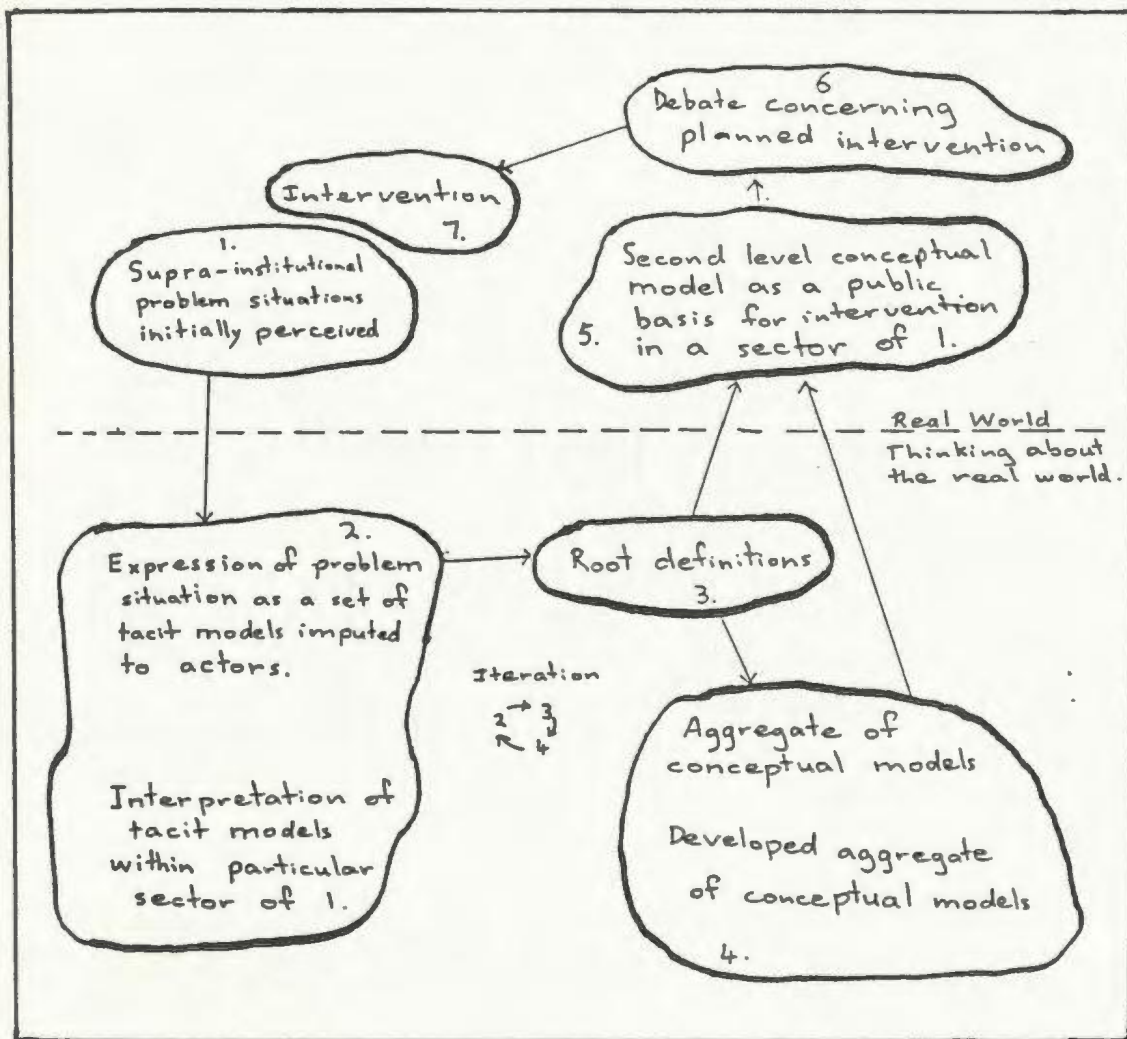 6
Debate concerning
planned intervention
Intervention
7.
1.
Supra-institutional
problem situations
initially perceived
Second level conceptual
model as a public
basis for intervention
5. in a sector of 1.
Real World
Thinking about
the real world.
2.
Expression of problem
situation as a set of
tacit models imputed
to actors.
Interpretation of
tacit models
within particular
sector of 1.
Root definitions
3.
Iteration
2 3
4
Aggregate of
conceptual models
Developed aggregate
of conceptual models
4.